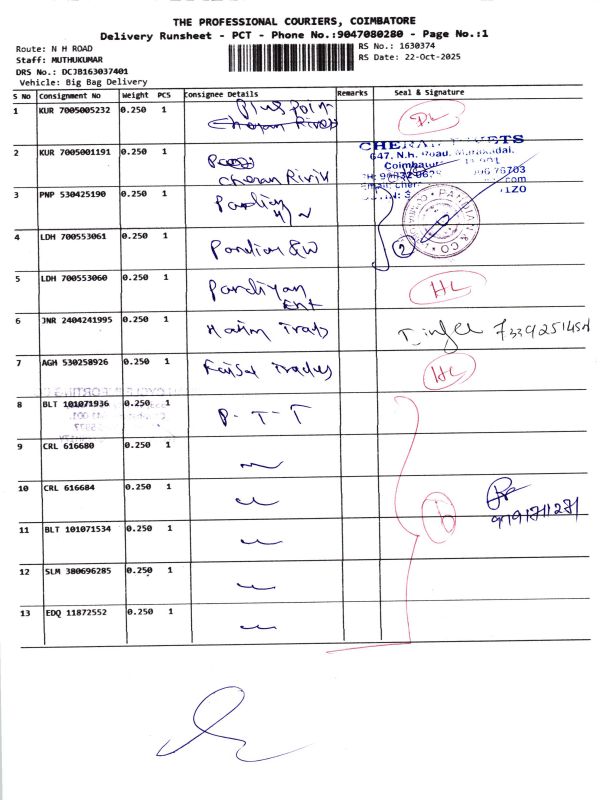 THE PROFESSIONAL COURIERS, COIMBATORE
Delivery Runsheet - PCT - Phone No.:9047080280 - Page No.:1
Route: N H ROAD
RS No.: 1630374
Staff: MUTHUKUMAR
RS Date: 22-Oct-2025
DRS No.: DCJB163037401
Vehicle: Big Bag Delivery
S No Consignment No Weight PCS Consignee Details Remarks Seal & Signature
1 KUR 7005005232 0.250 1 Plus Point
Cheran Rivets
D.L
2 KUR 7005001191 0.250 1
Cheran
CHERAN RIVETS
647, N.H. Road,
Coimbatore
3 PNP 530425190 0.250 1 Pandian
PANDIAN & CO
4 LDH 700553061 0.250 1 Pandian
2
5 LDH 700553060 0.250 1 Pandiyan
Ent
HL
6 JNR 2404241995 0.250 1 Hatim Trads
7 AGH 530258926 0.250 1 Faisal Trades
HL
8 BLT 101071936 0.250 1 P-T-T
9 CRL 616680 0.250 1
10 CRL 616684 0.250 1
11 BLT 101071534 0.250 1
12 SLM 380696285 0.250 1
13 EDQ 11872552 0.250 1